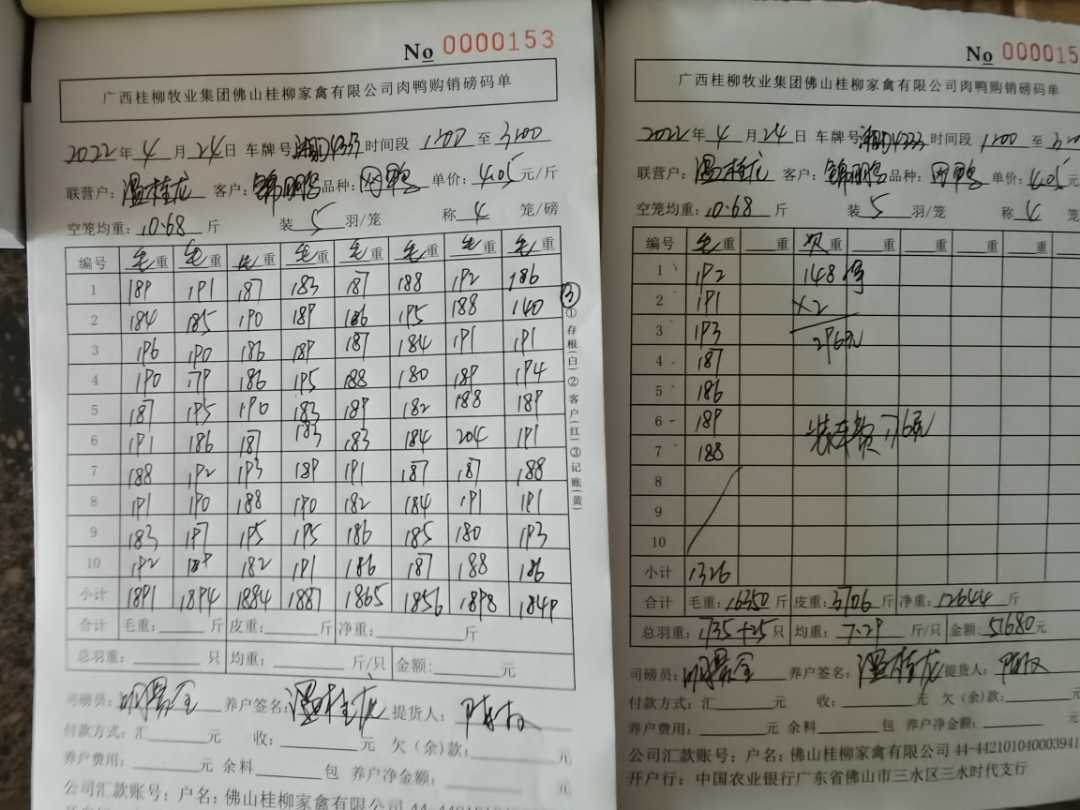 No 0000153
广西桂柳牧业集团佛山桂柳家禽有限公司肉鸭购销磅码单
2022年4月24日 车牌号湘D4333时间段1:00至3:00
联营户:温桂龙 客户: 品种: 鸭 单价:4.05元/斤
空笼均重:10.68斤 装5羽/笼 称4笼/磅
编号 毛重 毛重 毛重 毛重 毛重 毛重 毛重 毛重
1 189 191 187 183 187 188 192 186
2 184 185 190 189 186 195 188 140
3 196 190 186 189 187 184 191 191
4 190 179 186 195 188 180 189 194
5 187 195 190 183 189 182 188 189
6 191 186 187 183 183 184 204 191
7 188 192 193 189 191 187 187 188
8 191 190 188 190 182 184 191 191
9 183 197 195 195 186 185 180 193
10 192 189 182 191 186 187 188 186
小计 1891 1894 1884 1887 1865 1856 1898 1849
合计 毛重:斤 皮重:斤 净重:斤
总羽重:只 均重:斤/只 金额:元
司磅员: 养户签名:温桂龙 提货人:
付款方式:汇元 收:元 欠(余)款:元
养户费用:元 余料包 养户净金额:元
公司汇款账号:户名:佛山桂柳家禽有限公司 44-4421010400
③
①存根(白)②客户(红)③记账(黄)
No 000015
广西桂柳牧业集团佛山桂柳家禽有限公司肉鸭购销磅码单
2022年4月24日 车牌号湘D4333时间段1:00至3:00
联营户:温桂龙 客户: 品种: 鸭 单价:4.05元
空笼均重:10.68斤 装5羽/笼 称4笼
编号 毛重 重 重 重 重 重
1 192 148
2 191 ×2
3 193 296元
4 187
5 186
6 189 装车费176元
7 188
8
9
10
小计 1326
合计 毛重:16350斤 皮重:3706斤 净重:12644斤
总羽重:1735+25只 均重:7.29斤/只 金额:51680元
司磅员: 养户签名:温桂龙 提货人:
付款方式:汇元 收:元 欠(余)款:
养户费用:元 余料包 养户净金额:元
公司汇款账号:户名:佛山桂柳家禽有限公司 44-442101040003941
开户行:中国农业银行广东省佛山市三水区三水时代支行